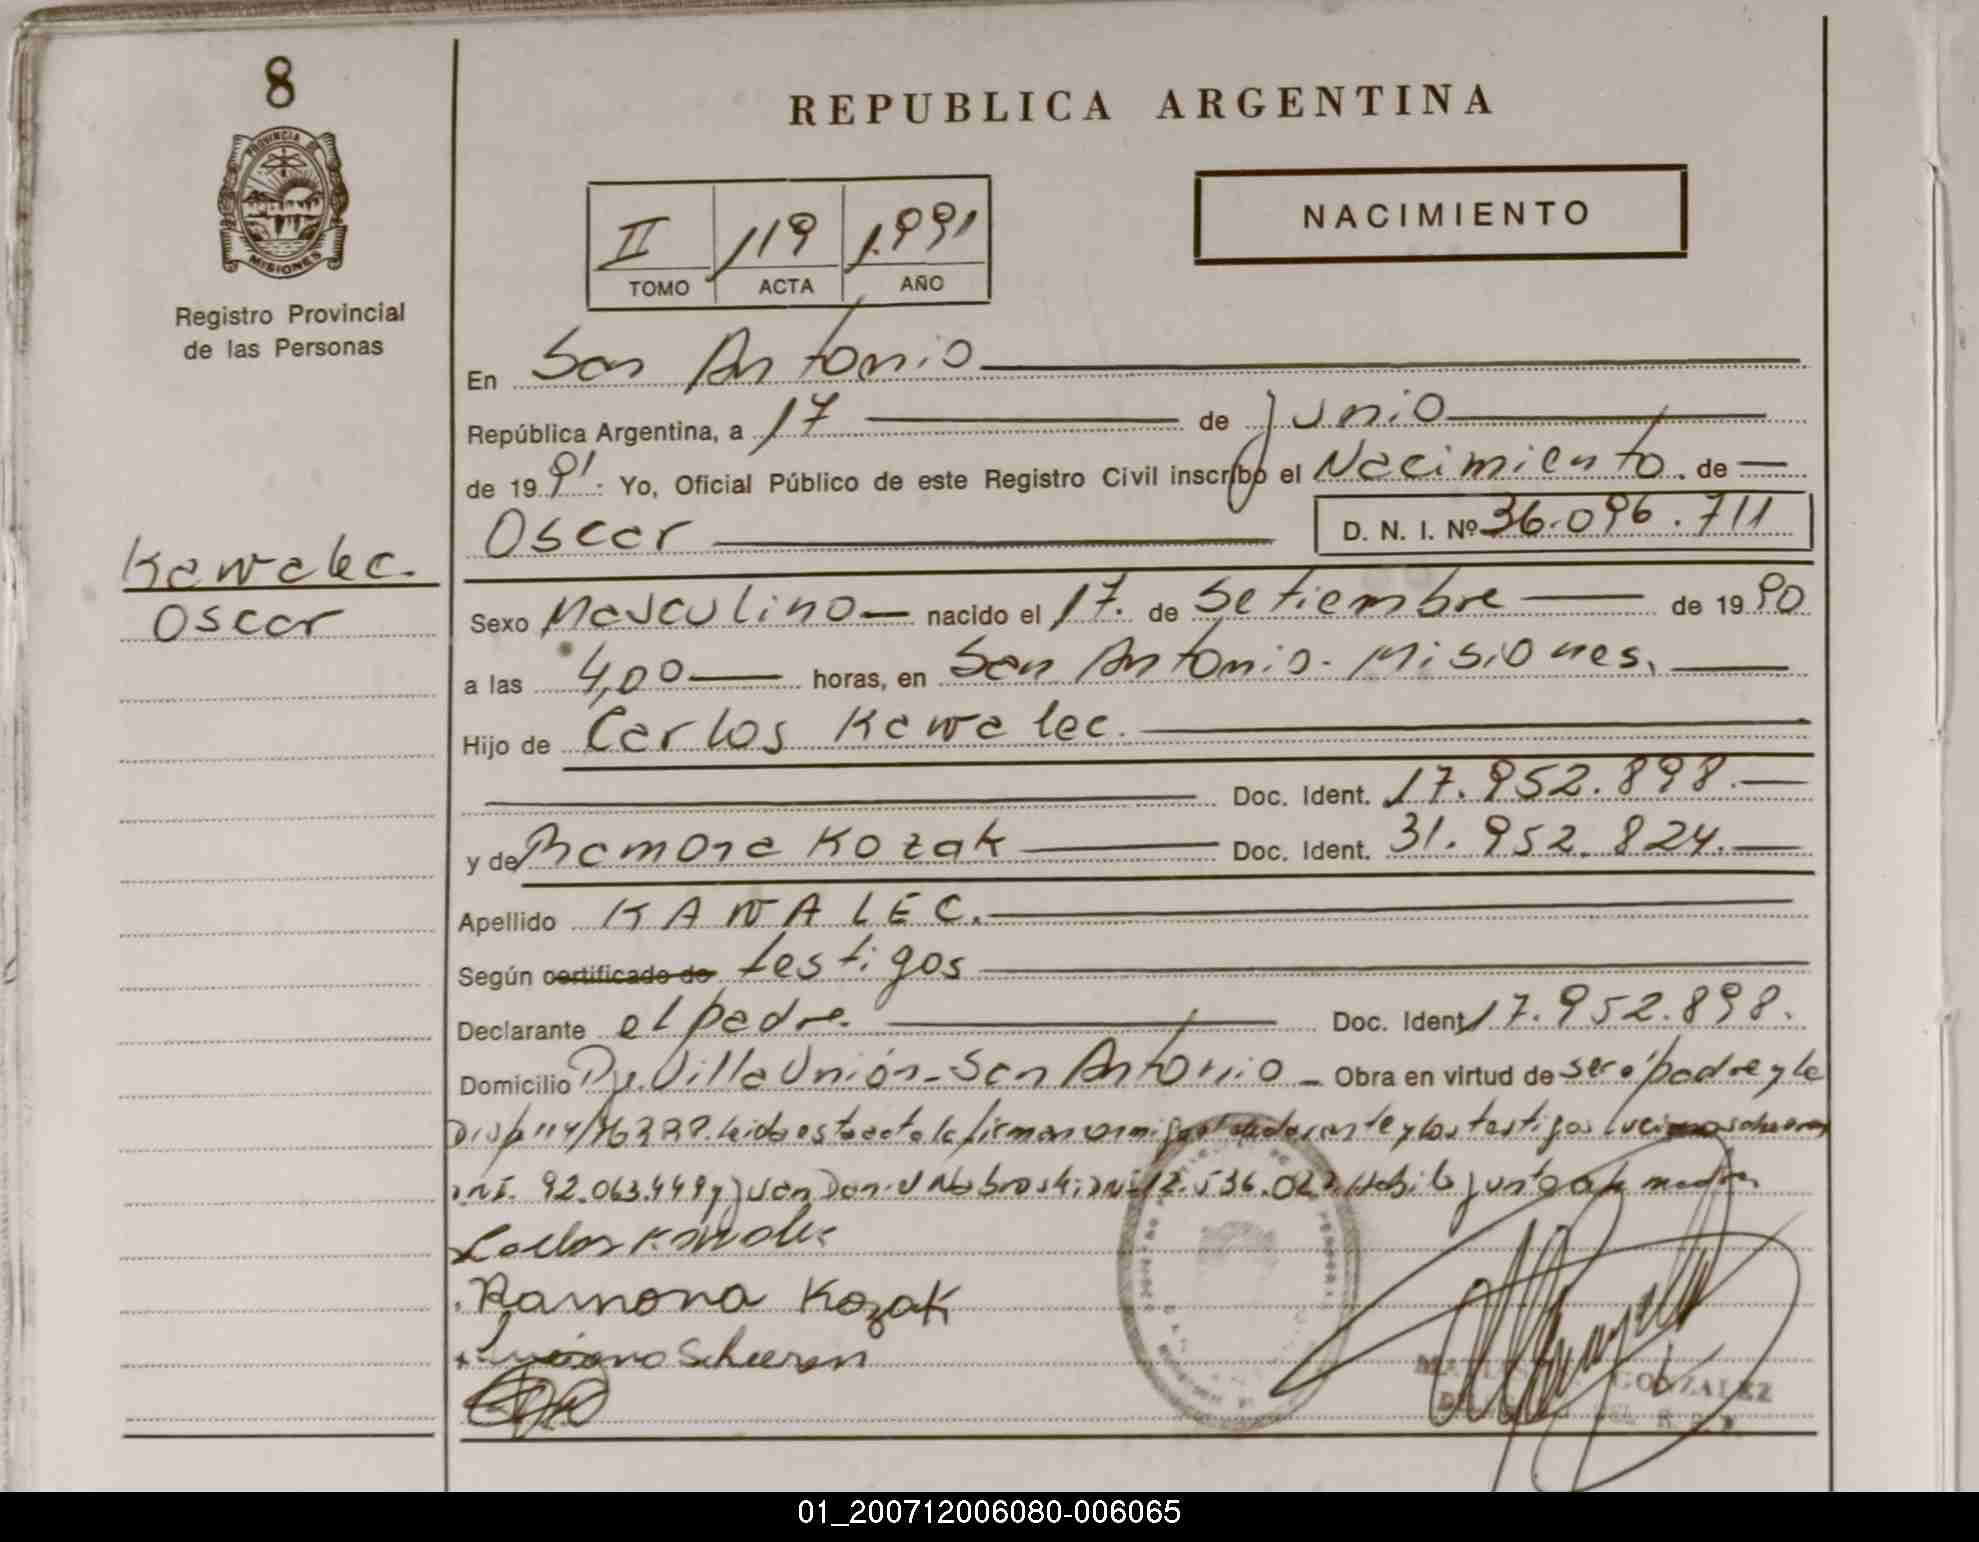 8
PROVINCIA DE
MISIONES
Registro Provincial
de las Personas
REPUBLICA ARGENTINA
II 119 1.991
TOMO ACTA AÑO
NACIMIENTO
En San Antonio
República Argentina, a 17 de junio
de 1991. Yo, Oficial Público de este Registro Civil inscribo el Nacimiento de
Oscar D. N. I. Nº 36.096.711
Kawalec.
Oscar
Sexo Masculino nacido el 17. de Setiembre de 1990
a las 4,00 horas, en San Antonio - Misiones.
Hijo de Carlos Kawalec.
Doc. Ident. 17.952.898.
y de Ramona Kozak Doc. Ident. 31.952.824.
Apellido KAWALEC.
Según certificado de testigos
Declarante el padre. Doc. Ident 17.952.898.
Domicilio Villa Unión - San Antonio - Obra en virtud de ser padre y la
Disp 114/76 leida esta acta la firman conmigo y los testigos Luciano Scheeren
92.063.449 y Juan 12.536. junto a la madre
Carlos Kawalec
Ramona Kozak
Luciano Scheeren
GONZALEZ
01_200712006080-006065